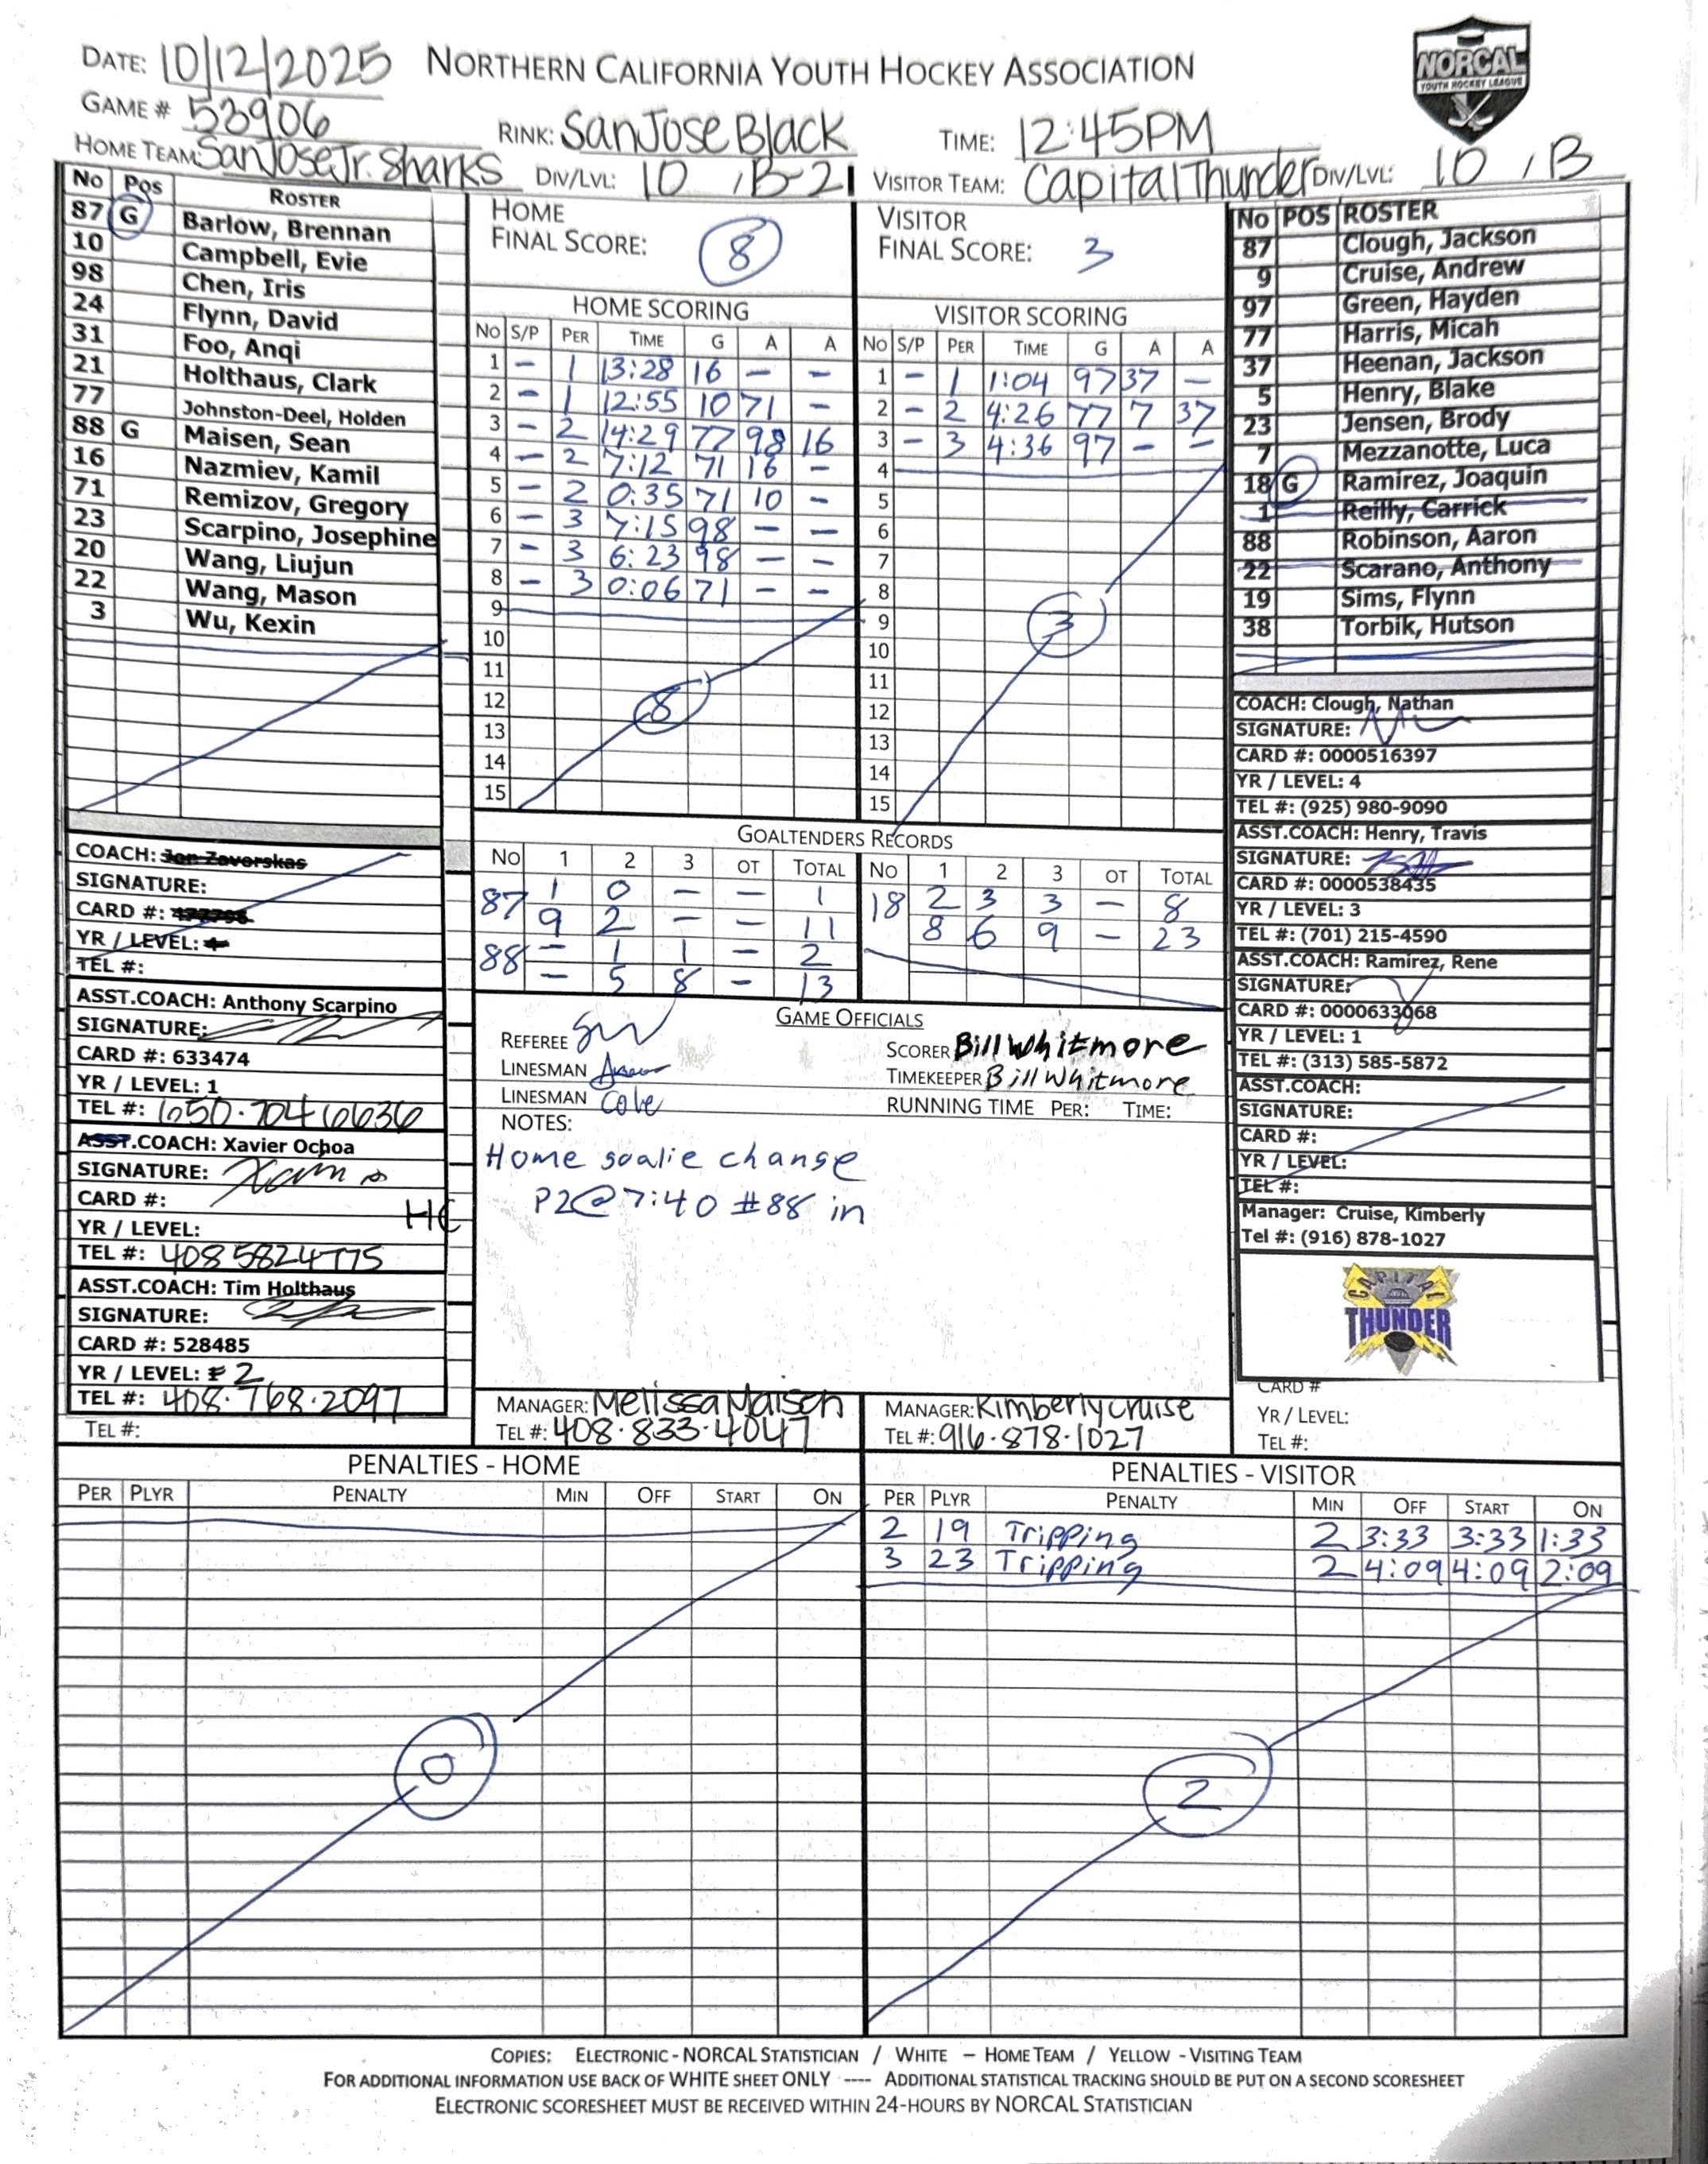 DATE: 10/12/2025 NORTHERN CALIFORNIA YOUTH HOCKEY ASSOCIATION
NORCAL
YOUTH HOCKEY LEAGUE
GAME # 53906 RINK: San Jose Black TIME: 12:45PM
HOME TEAM: San Jose Jr. Sharks DIV/LVL: 10 , B-21 VISITOR TEAM: Capital Thunder DIV/LVL: 10 , B
No Pos ROSTER
87 G Barlow, Brennan
10 Campbell, Evie
98 Chen, Iris
24 Flynn, David
31 Foo, Anqi
21 Holthaus, Clark
77 Johnston-Deel, Holden
88 G Maisen, Sean
16 Nazmiev, Kamil
71 Remizov, Gregory
23 Scarpino, Josephine
20 Wang, Liujun
22 Wang, Mason
3 Wu, Kexin
COACH: Jon Zavorskas
SIGNATURE:
CARD #:
YR / LEVEL:
TEL #:
ASST.COACH: Anthony Scarpino
SIGNATURE:
CARD #: 633474
YR / LEVEL: 1
TEL #: 650.704 6636
ASST.COACH: Xavier Ochoa
SIGNATURE:
CARD #:
HC
YR / LEVEL:
TEL #: 408 5824775
ASST.COACH: Tim Holthaus
SIGNATURE:
CARD #: 528485
YR / LEVEL: 2
TEL #: 408.768.2097
TEL #:
HOME
FINAL SCORE: 8
HOME SCORING
No S/P PER TIME G A A
1 – 1 13:28 16 – –
2 – 1 12:55 10 71 –
3 – 2 14:29 77 98 16
4 – 2 7:12 71 16 –
5 – 2 0:35 71 10 –
6 – 3 7:15 98 – –
7 – 3 6:23 98 – –
8 – 3 0:06 71 – –
9
10
11
12
13
14
15
8
VISITOR
FINAL SCORE: 3
VISITOR SCORING
No S/P PER TIME G A A
1 – 1 1:04 97 37 –
2 – 2 4:26 77 7 37
3 – 3 4:36 97 – –
4
5
6
7
8
9
10
11
12
13
14
15
3
GOALTENDERS RECORDS
No 1 2 3 OT TOTAL No 1 2 3 OT TOTAL
87 1 0 – – 1 18 2 3 3 – 8
9 2 – – 11 8 6 9 – 23
88 – 1 1 – 2
– 5 8 – 13
GAME OFFICIALS
REFEREE
LINESMAN
LINESMAN Cole
SCORER Bill Whitmore
TIMEKEEPER Bill Whitmore
RUNNING TIME PER: TIME:
NOTES:
Home goalie change
P2@7:40 #88 in
MANAGER: Melissa Maisen
TEL #: 408.833.4047
MANAGER: Kimberly Cruise
TEL #: 916.878.1027
No POS ROSTER
87 Clough, Jackson
9 Cruise, Andrew
97 Green, Hayden
77 Harris, Micah
37 Heenan, Jackson
5 Henry, Blake
23 Jensen, Brody
7 Mezzanotte, Luca
18 G Ramirez, Joaquin
1 Reilly, Carrick
88 Robinson, Aaron
22 Scarano, Anthony
19 Sims, Flynn
38 Torbik, Hutson
COACH: Clough, Nathan
SIGNATURE:
CARD #: 0000516397
YR / LEVEL: 4
TEL #: (925) 980-9090
ASST.COACH: Henry, Travis
SIGNATURE:
CARD #: 0000538435
YR / LEVEL: 3
TEL #: (701) 215-4590
ASST.COACH: Ramirez, Rene
SIGNATURE:
CARD #: 0000633068
YR / LEVEL: 1
TEL #: (313) 585-5872
ASST.COACH:
SIGNATURE:
CARD #:
YR / LEVEL:
TEL #:
Manager: Cruise, Kimberly
Tel #: (916) 878-1027
CAPITAL
THUNDER
CARD #
YR / LEVEL:
TEL #:
PENALTIES - HOME
PER PLYR PENALTY MIN OFF START ON
0
PENALTIES - VISITOR
PER PLYR PENALTY MIN OFF START ON
2 19 Tripping 2 3:33 3:33 1:33
3 23 Tripping 2 4:09 4:09 2:09
2
COPIES: ELECTRONIC - NORCAL STATISTICIAN / WHITE – HOME TEAM / YELLOW - VISITING TEAM
FOR ADDITIONAL INFORMATION USE BACK OF WHITE SHEET ONLY ---- ADDITIONAL STATISTICAL TRACKING SHOULD BE PUT ON A SECOND SCORESHEET
ELECTRONIC SCORESHEET MUST BE RECEIVED WITHIN 24-HOURS BY NORCAL STATISTICIAN